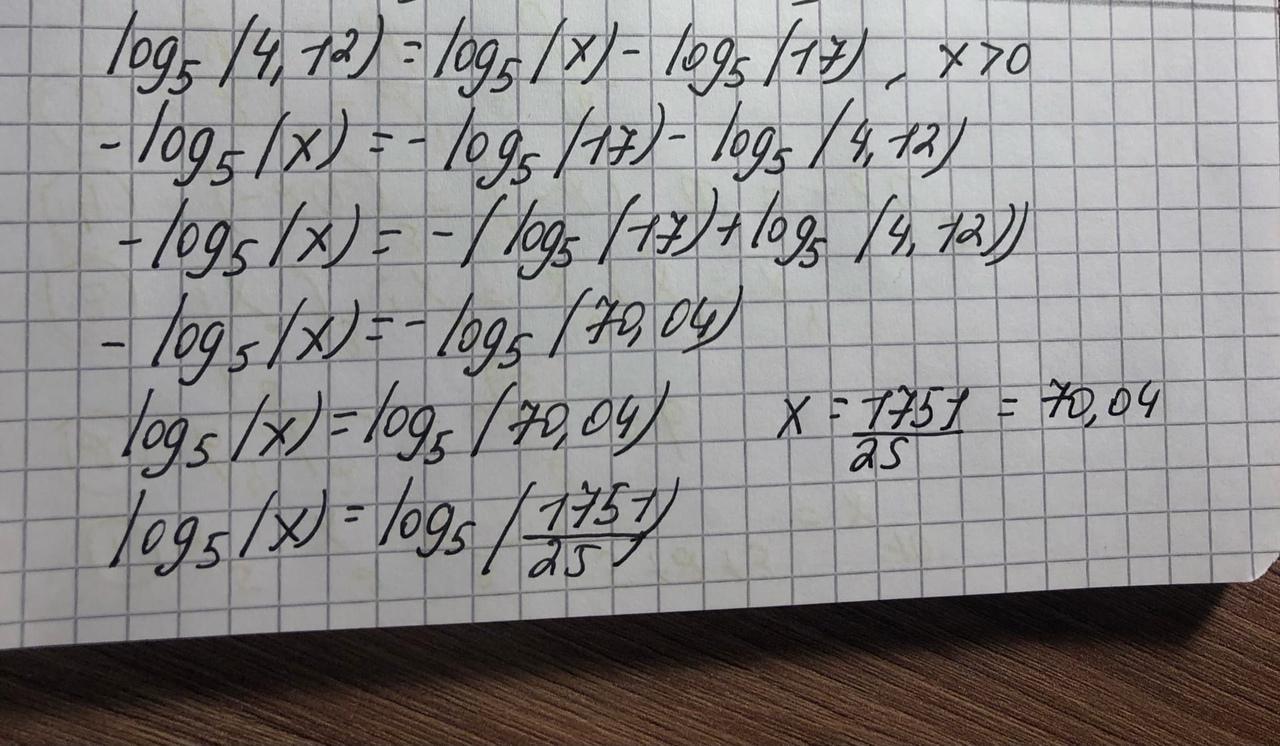 log₅(4,12) = log₅(x) - log₅(17), x>0
-log₅(x) = -log₅(17) - log₅(4,12)
-log₅(x) = -(log₅(17) + log₅(4,12))
-log₅(x) = -log₅(70,04)
log₅(x) = log₅(70,04) x = 1751/25 = 70,04
log₅(x) = log₅(1751/25)